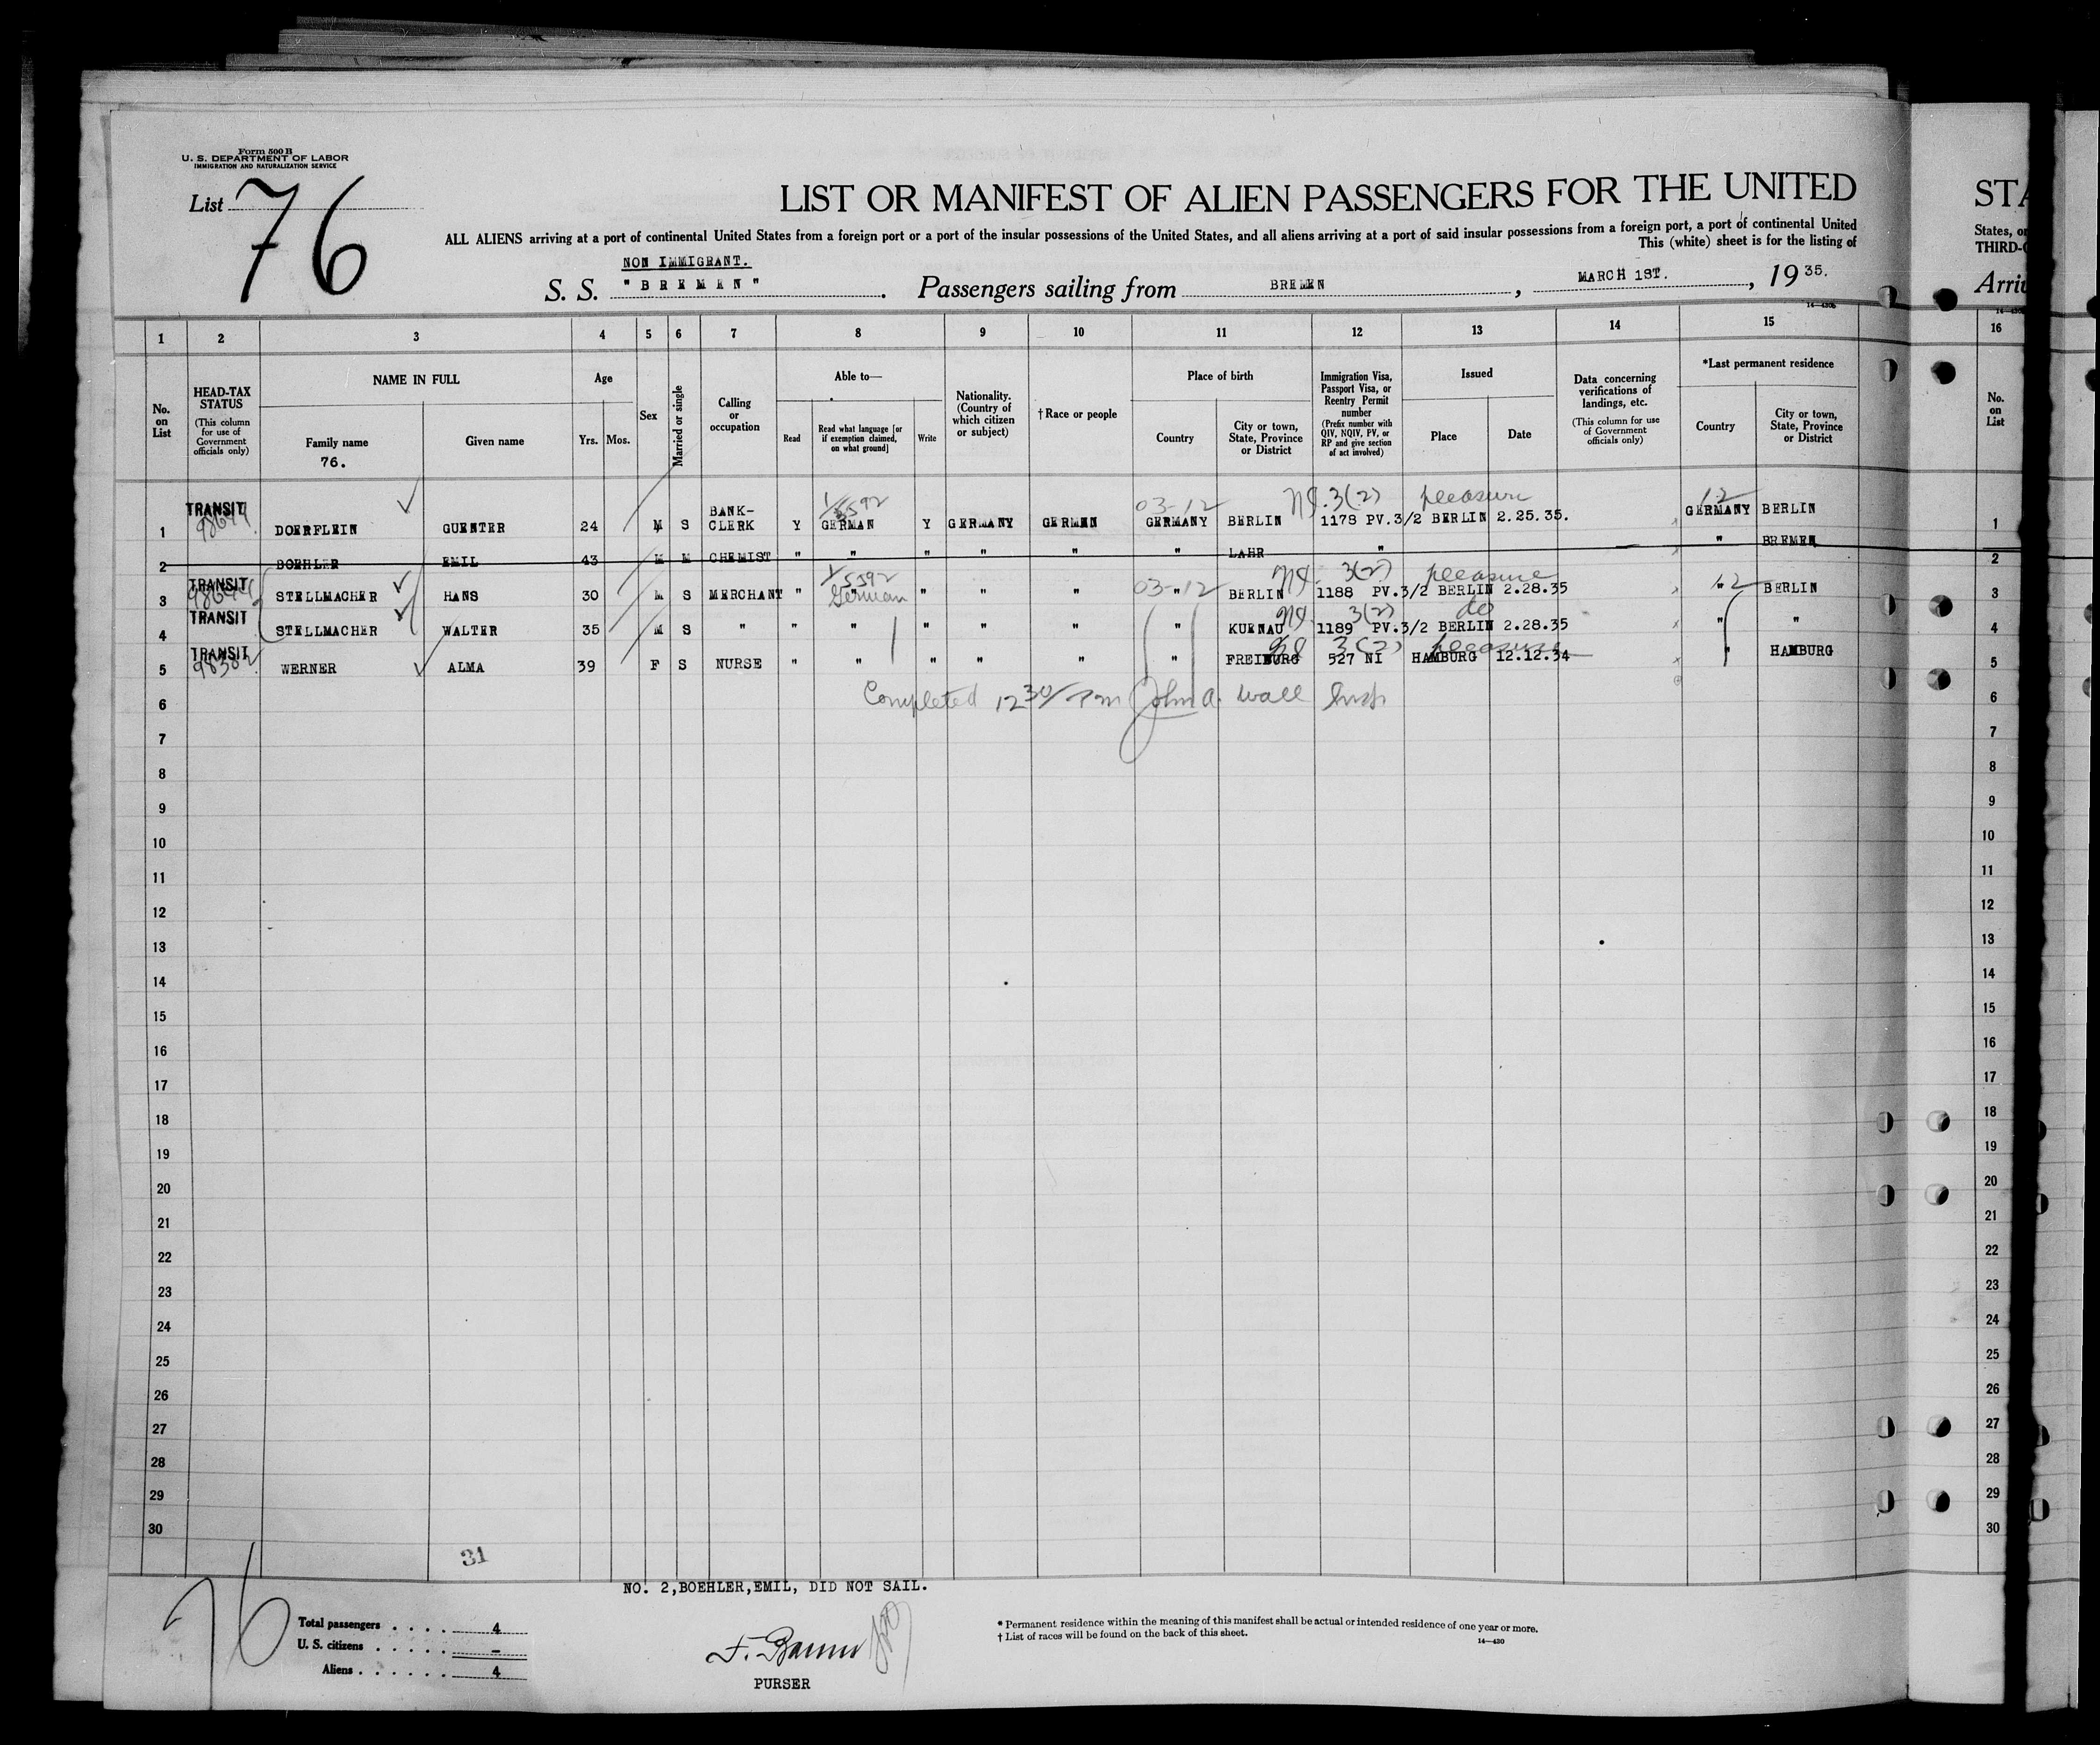 Form 500 B
U. S. DEPARTMENT OF LABOR
IMMIGRATION AND NATURALIZATION SERVICE
List 76
LIST OR MANIFEST OF ALIEN PASSENGERS FOR THE UNITED
ALL ALIENS arriving at a port of continental United States from a foreign port or a port of the insular possessions of the United States, and all aliens arriving at a port of said insular possessions from a foreign port, a port of continental United
This (white) sheet is for the listing of
NON IMMIGRANT.
S. S. "BREMEN". Passengers sailing from BREMEN, MARCH 1ST., 1935.
STA
States, or
THIRD-C
Arriv
1 2 3 4 5 6 7 8 9 10 11 12 13 14 15 16
No. on List
HEAD-TAX STATUS
(This column for use of Government officials only)
NAME IN FULL
Family name
76.
Given name
Age
Yrs. Mos.
Sex
Married or single
Calling or occupation
Able to—
Read
Read what language [or if exemption claimed, on what ground]
Write
Nationality. (Country of which citizen or subject)
†Race or people
Place of birth
Country
City or town, State, Province or District
Immigration Visa, Passport Visa, or Reentry Permit number
(Prefix number with QIV, NQIV, PV, or RP and give section of act involved)
Issued
Place
Date
Data concerning verifications of landings, etc.
(This column for use of Government officials only)
*Last permanent residence
Country
City or town, State, Province or District
No. on List
03-12 3(2) pleasure 12
1 TRANSIT DOERFLEIN GUENTER 24 M S BANK-CLERK Y GERMAN Y GERMANY GERMEN GERMANY BERLIN 1178 PV.3/2 BERLIN 2.25.35. GERMANY BERLIN 1
2 BOEHLER EMIL 43 M M CHEMIST " " " " " " LAHR " " BREMEN 2
03-12 3(2) pleasure 12
3 TRANSIT STELLMACHER HANS 30 M S MERCHANT " " German " " " " BERLIN 1188 PV.3/2 BERLIN 2.28.35 " BERLIN 3
3(2) do
4 TRANSIT STELLMACHER WALTER 35 M S " " " " " " " KUENAU 1189 PV.3/2 BERLIN 2.28.35 " " 4
3(2) pleasure
5 TRANSIT WERNER ALMA 39 F S NURSE " " " " " " FREIBURG 527 NI HAMBURG 12.12.34 " HAMBURG 5
Completed 12 30/ Pm John A. Wall Insp
6 6
7 7
8 8
9 9
10 10
11 11
12 12
13 13
14 14
15 15
16 16
17 17
18 18
19 19
20 20
21 21
22 22
23 23
24 24
25 25
26 26
27 27
28 28
29 29
30 30
31
NO. 2,BOEHLER,EMIL, DID NOT SAIL.
76
Total passengers . . . . 4
U. S. citizens . . . . . –
Aliens . . . . . . 4
PURSER
* Permanent residence within the meaning of this manifest shall be actual or intended residence of one year or more.
† List of races will be found on the back of this sheet.
14—430